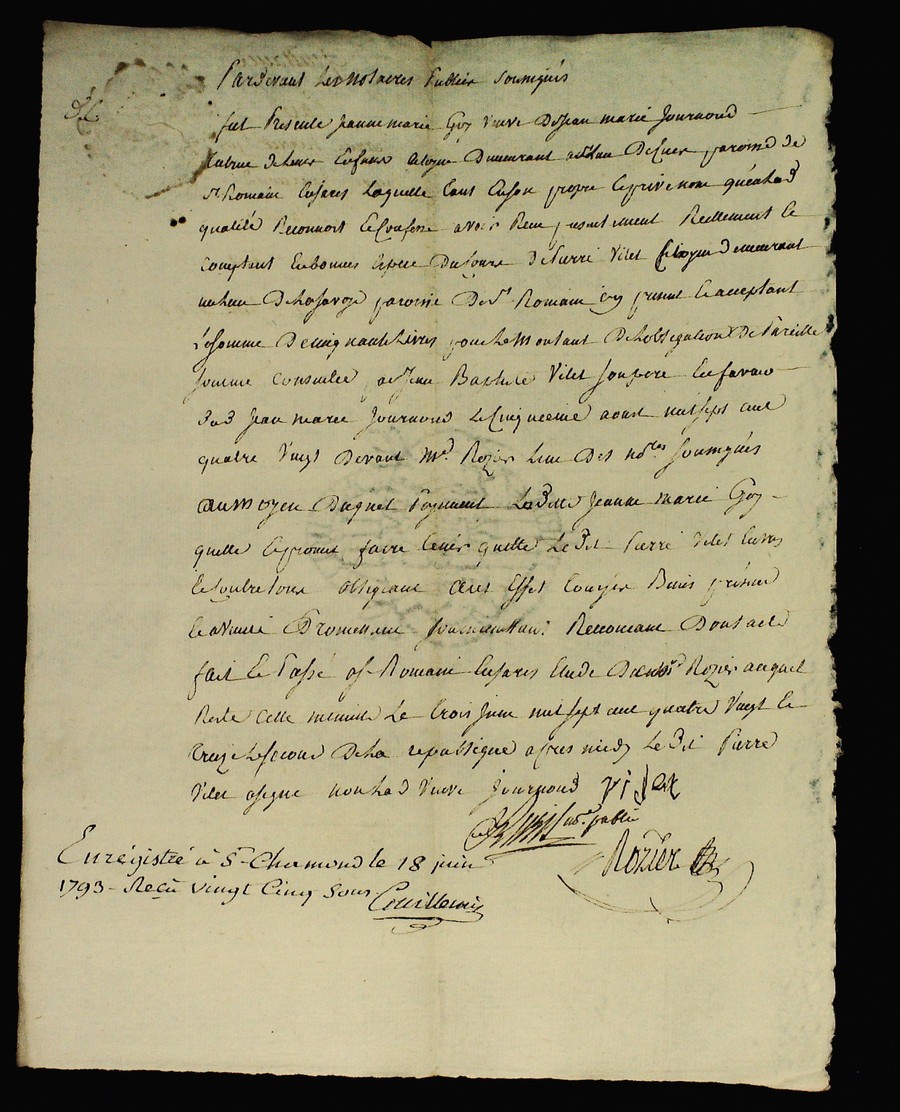 Pardevant Les notaires Publics Soussignés
fut Presente Jeanne marie Goy Veuve De Jean marie Journoud
tutrice de leurs Enfans Citoyne Demeurant au lieu De paroisse de
St Romain En Jares Laquelle tant En son propre Et privé nom qu'en lad
qualité Reconnoit Et Confesse avoir Reçu presentement Reellement Et
Comptant En bonnes Espece Du Cours De Pierre Vilet Citoyen demeurant
au lieu De paroisse De St Romain icy present Et acceptant
La somme De cinquante Livres pour Le Montant De Lobligation De Pareille
somme Consentie par Jean Baptiste Vilet Son pere En faveur
Dud Jean marie Journoud Le Cinquieme aoust mil sept cent
quatre Vingt Devant Me Rozier L'un Des nores Soussignés
au Moyen Duquel Payement Ladite Jeanne Marie Goy
quitte Et promet faire tenir quitte Ledit Pierre Vilet Envers
Et Contre tous obligeant a cet Effet Tous ses Biens présens
Et a venir Promettant Soumettant Renoncant Dont acte
fait Et Passé a St Romain En Jares Etude Dud Me Rozier auquel
Reste Cette minute Le trois juin mil sept cent quatre Vingt Et
treize Le second De La republique apres midy Ledit Pierre
Vilet a signé non Lad Veuve Journoud Vilet
nore public
Rozier
Enregistré à St Chamond le 18 juin
1793 - Reçu Vingt Cinq Sous